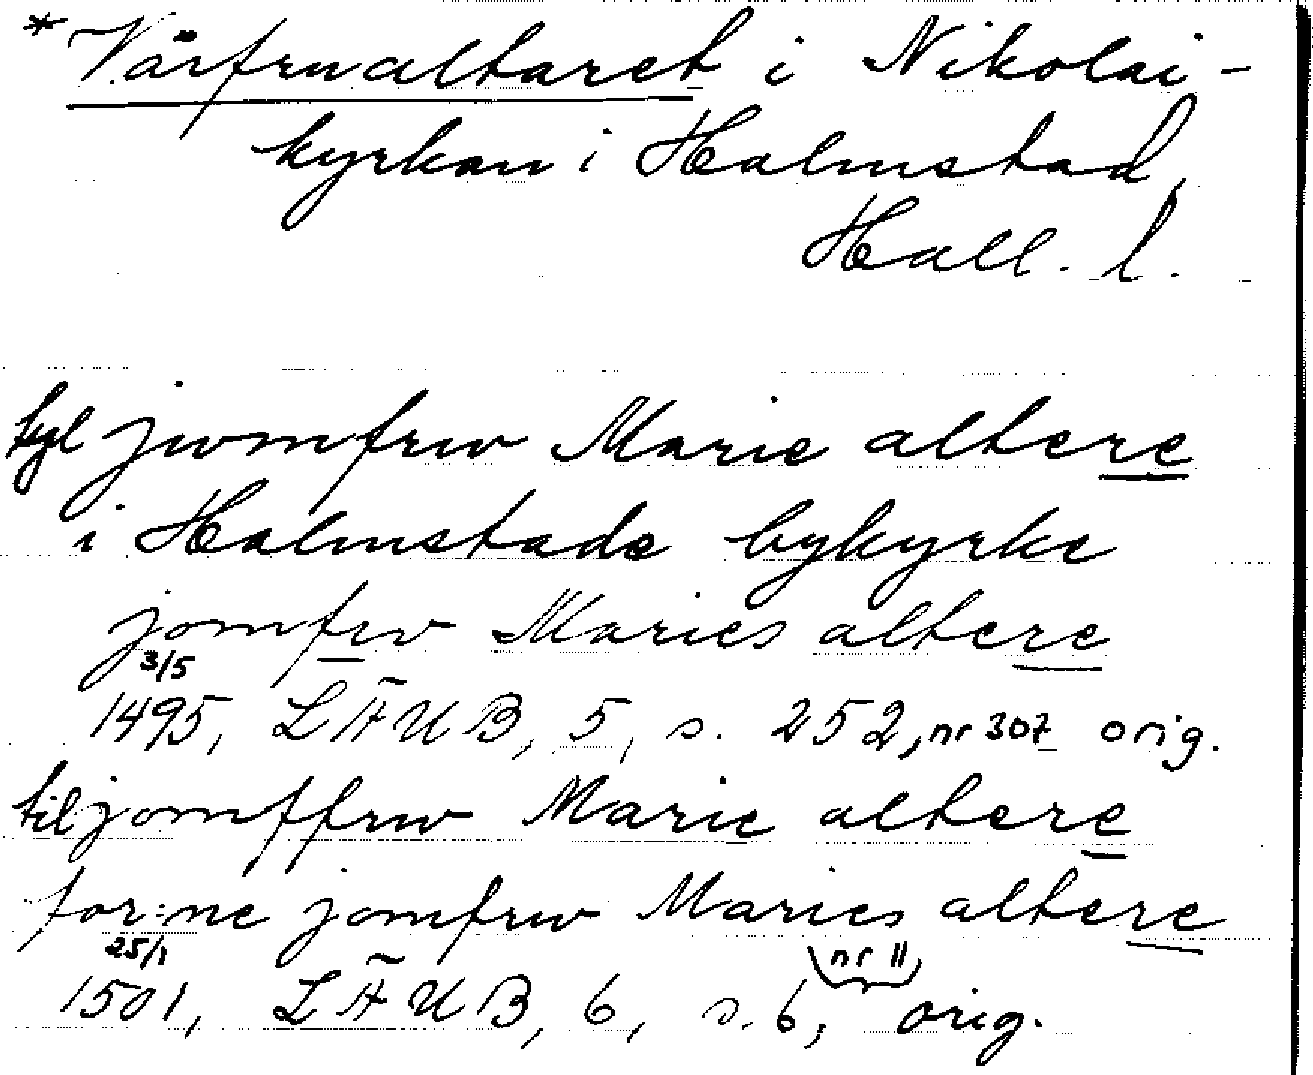 * Vårfrualtaret i Nikolai-
kyrkan i Halmstad,
Hall. l.
tyl jwmfrw Marie altere
i Halmstade bykyrke
jomfrv Maries altere
3/5
1495, LÄUB, 5, s. 252, nr 307 orig.
til jomffrw Marie altere
for:ne jomfrw Maries altere
25/1 nr 11
1501, LÄUB, 6, s. 6, orig.